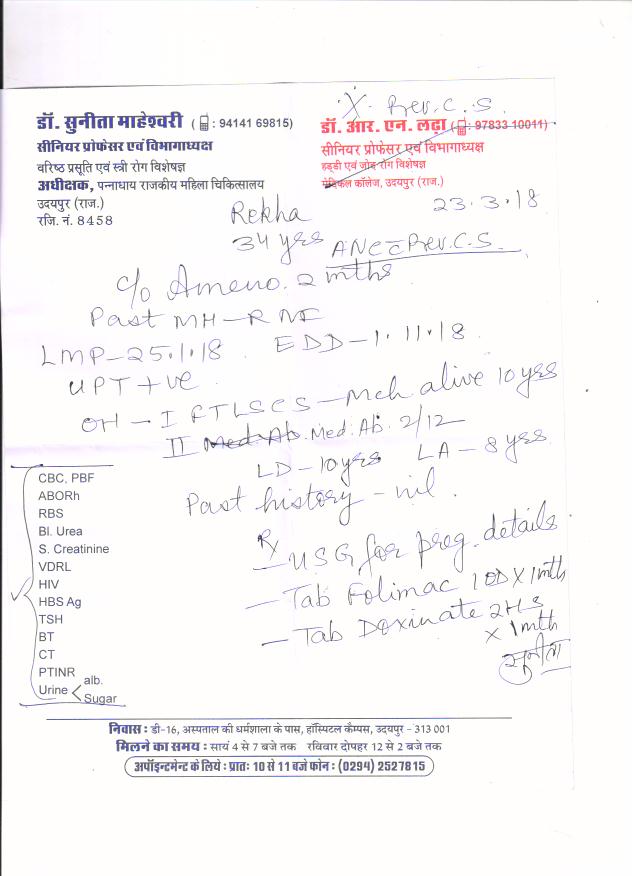 X Prev. C. S.
डॉ. सुनीता माहेश्वरी ( : 94141 69815)
सीनियर प्रोफेसर एवं विभागाध्यक्ष
वरिष्ठ प्रसूति एवं स्त्री रोग विशेषज्ञ
अधीक्षक, पन्नाधाय राजकीय महिला चिकित्सालय
उदयपुर (राज.)
रजि. नं. 8458
डॉ. आर. एन. लढ़ा ( : 97833 10011)
सीनियर प्रोफेसर एवं विभागाध्यक्ष
हड्डी एवं जोड़ रोग विशेषज्ञ
मेडिकल कॉलेज, उदयपुर (राज.)
23.3.18
Rekha
34 yrs
ANC c̄ Prev. C.S.
c/o Ameno. 2 mths
Past MH - RNF
LMP - 25.1.18 EDD - 1.11.18
UPT +ve
OH - I FTLSCS - Mch alive 10 yrs
II Med. Ab. Med. Ab. 2/12
LD - 10 yrs LA - 8 yrs
Past history - nil.
Rx
- USG for preg. details
- Tab Folimac 1 OD X 1 mth
- Tab Doxinate 2 HS
X 1 mth
सुनीता
CBC, PBF
ABORh
RBS
Bl. Urea
S. Creatinine
VDRL
HIV
HBS Ag
TSH
BT
CT
PTINR
Urine < alb.
Sugar
निवास : डी-16, अस्पताल की धर्मशाला के पास, हॉस्पिटल कैम्पस, उदयपुर - 313 001
मिलने का समय : सायं 4 से 7 बजे तक रविवार दोपहर 12 से 2 बजे तक
अपॉइन्टमेन्ट के लिये : प्रातः 10 से 11 बजे फोन : (0294) 2527815